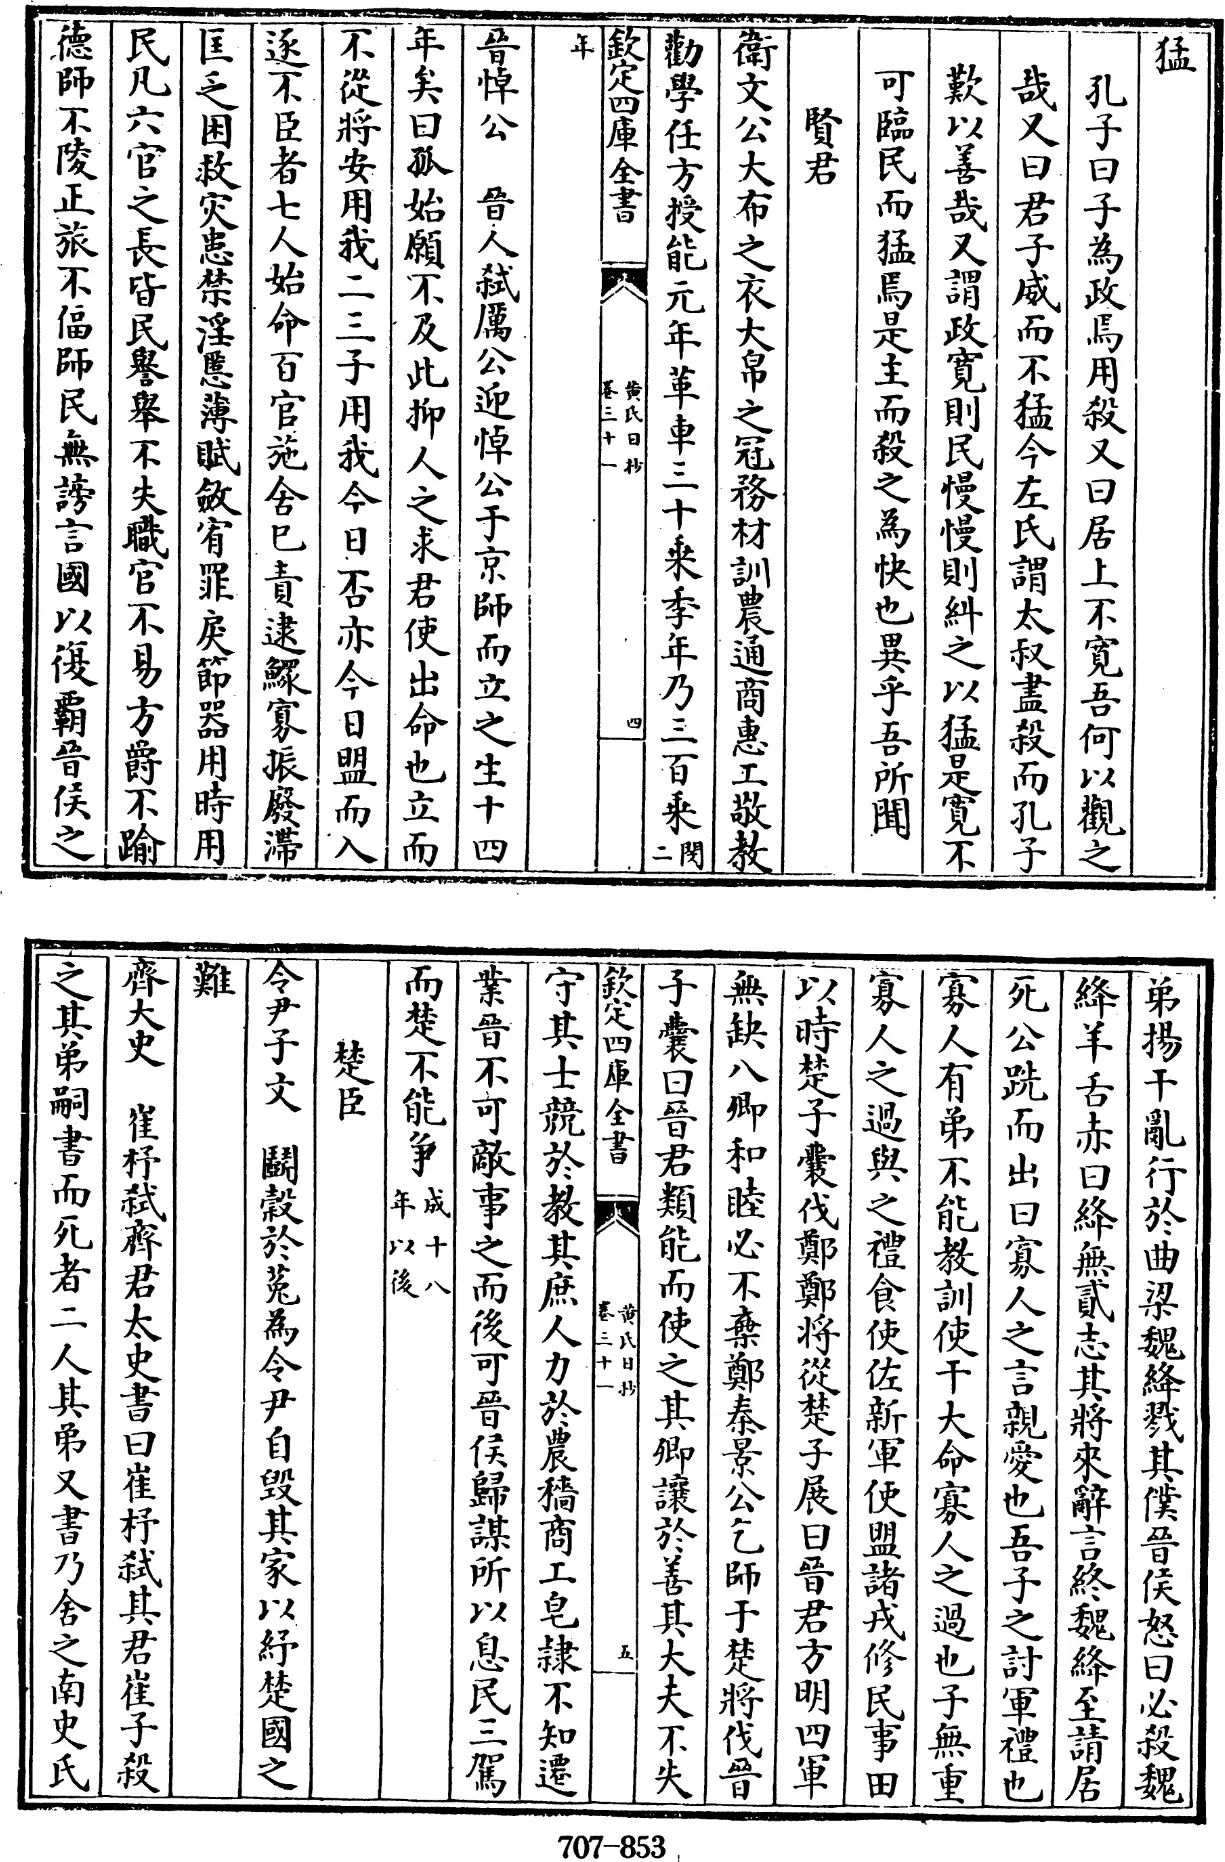 猛
孔子曰子為政焉用殺又曰居上不寛吾何以觀之
哉又曰君子威而不猛今左氏謂太叔盡殺而孔子
歎以善哉又謂政寛則民慢慢則糾之以猛是寛不
可臨民而猛焉是主而殺之為快也異乎吾所聞
賢君
衛文公大布之衣大帛之冠務材訓農通商惠工敬教
勸學任方授能元年革車三十乘季年乃三百乘閔二
欽定四庫全書
黄氏日抄
卷三十一
四
年
晉悼公 晉人弑厲公迎悼公于京師而立之生十四
年矣曰孤始願不及此抑人之求君使出命也立而
不從將安用我二三子用我今日否亦今日盟而入
逐不臣者七人始命百官施舍已責逮鰥寡振廢滯
匡乏困救灾患禁淫慝薄賦斂宥罪戾節器用時用
民凡六官之長皆民譽舉不失職官不易方爵不踰
德師不陵正旅不偪師民無謗言國以復覇晉侯之
弟揚干亂行於曲梁魏絳戮其僕晉侯怒曰必殺魏
絳羊舌赤曰絳無貳志其將來辭言終魏絳至請居
死公跣而出曰寡人之言親愛也吾子之討軍禮也
寡人有弟不能教訓使干大命寡人之過也子無重
寡人之過與之禮食使佐新軍使盟諸戎修民事田
以時楚子囊伐鄭鄭將從楚子展曰晉君方明四軍
無缺八卿和睦必不棄鄭秦景公乞師于楚將伐晉
子囊曰晉君類能而使之其卿讓於善其大夫不失
欽定四庫全書
黄氏日抄
卷三十一
五
守其士競於教其庶人力於農穡商工皂隷不知遷
業晉不可敵事之而後可晉侯歸謀所以息民三駕
而楚不能爭成十八年以後
楚臣
令尹子文 鬭穀於菟為令尹自毁其家以紓楚國之
難
齊大史 崔杼弑齊君太史書曰崔杼弑其君崔子殺
之其弟嗣書而死者二人其弟又書乃舍之南史氏
707-853